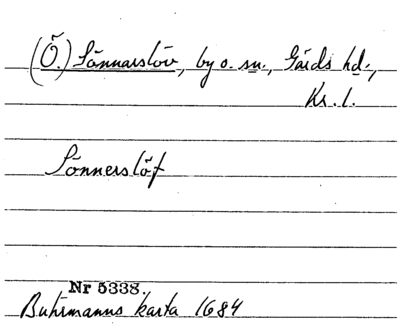 (Ö.) Sönnarslöv, by o. sn., Gärds hd.,
Kr. l.
Sönnerslöf
Nr 5338.
Buhrmanns karta 1684